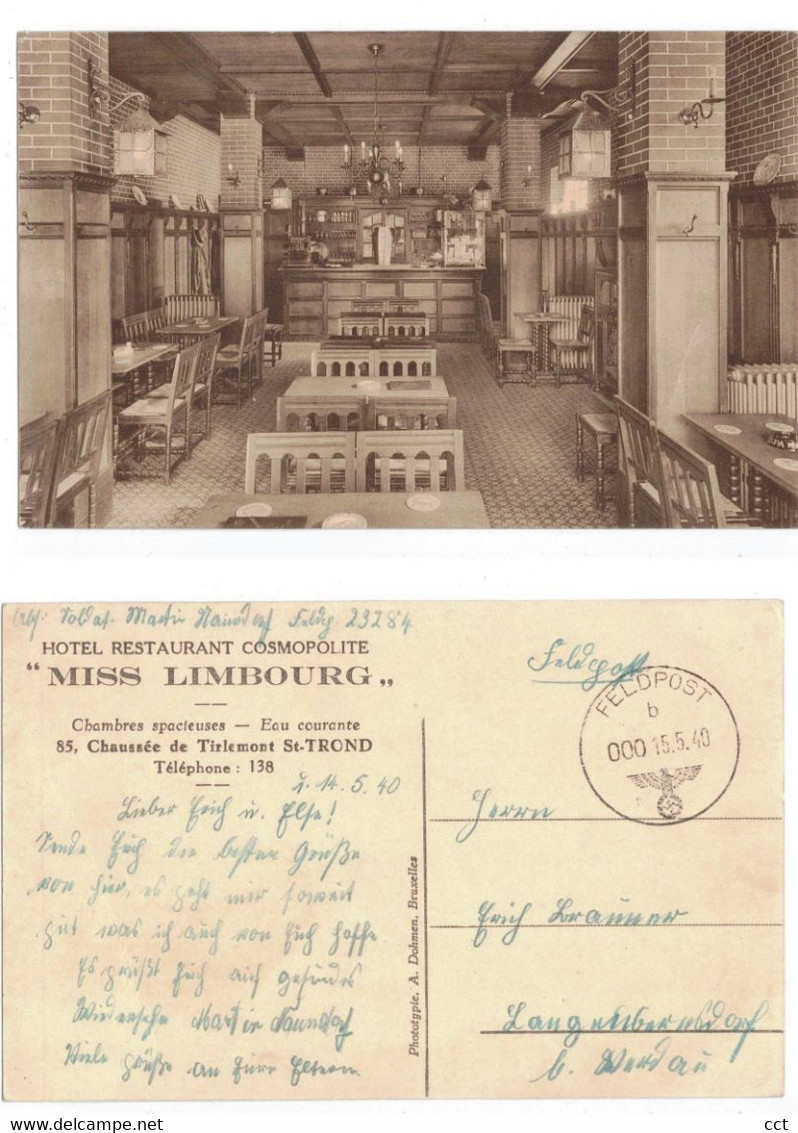 Abs. Soldat. Martin Naundorf Feldp. 23284
HOTEL RESTAURANT COSMOPOLITE
“MISS LIMBOURG„
Chambres spacieuses — Eau courante
85, Chaussée de Tirlemont St-TROND
Téléphone : 138
14.5.40
Lieber Erich u. Else!
Sende Euch die besten Grüße
von hier, es geht mir soweit
gut was ich auch von Euch hoffe
Es grüßt Euch auf gesundes
Wiedersehn Martin Naundorf
Viele Grüße an Eure Eltern
Phototypie. A. Dohmen, Bruxelles
Feldpost
FELDPOST
b
000 15.5.40
Herrn
Erich Brauner
Langenbernsdorf
b. Werdau
cct